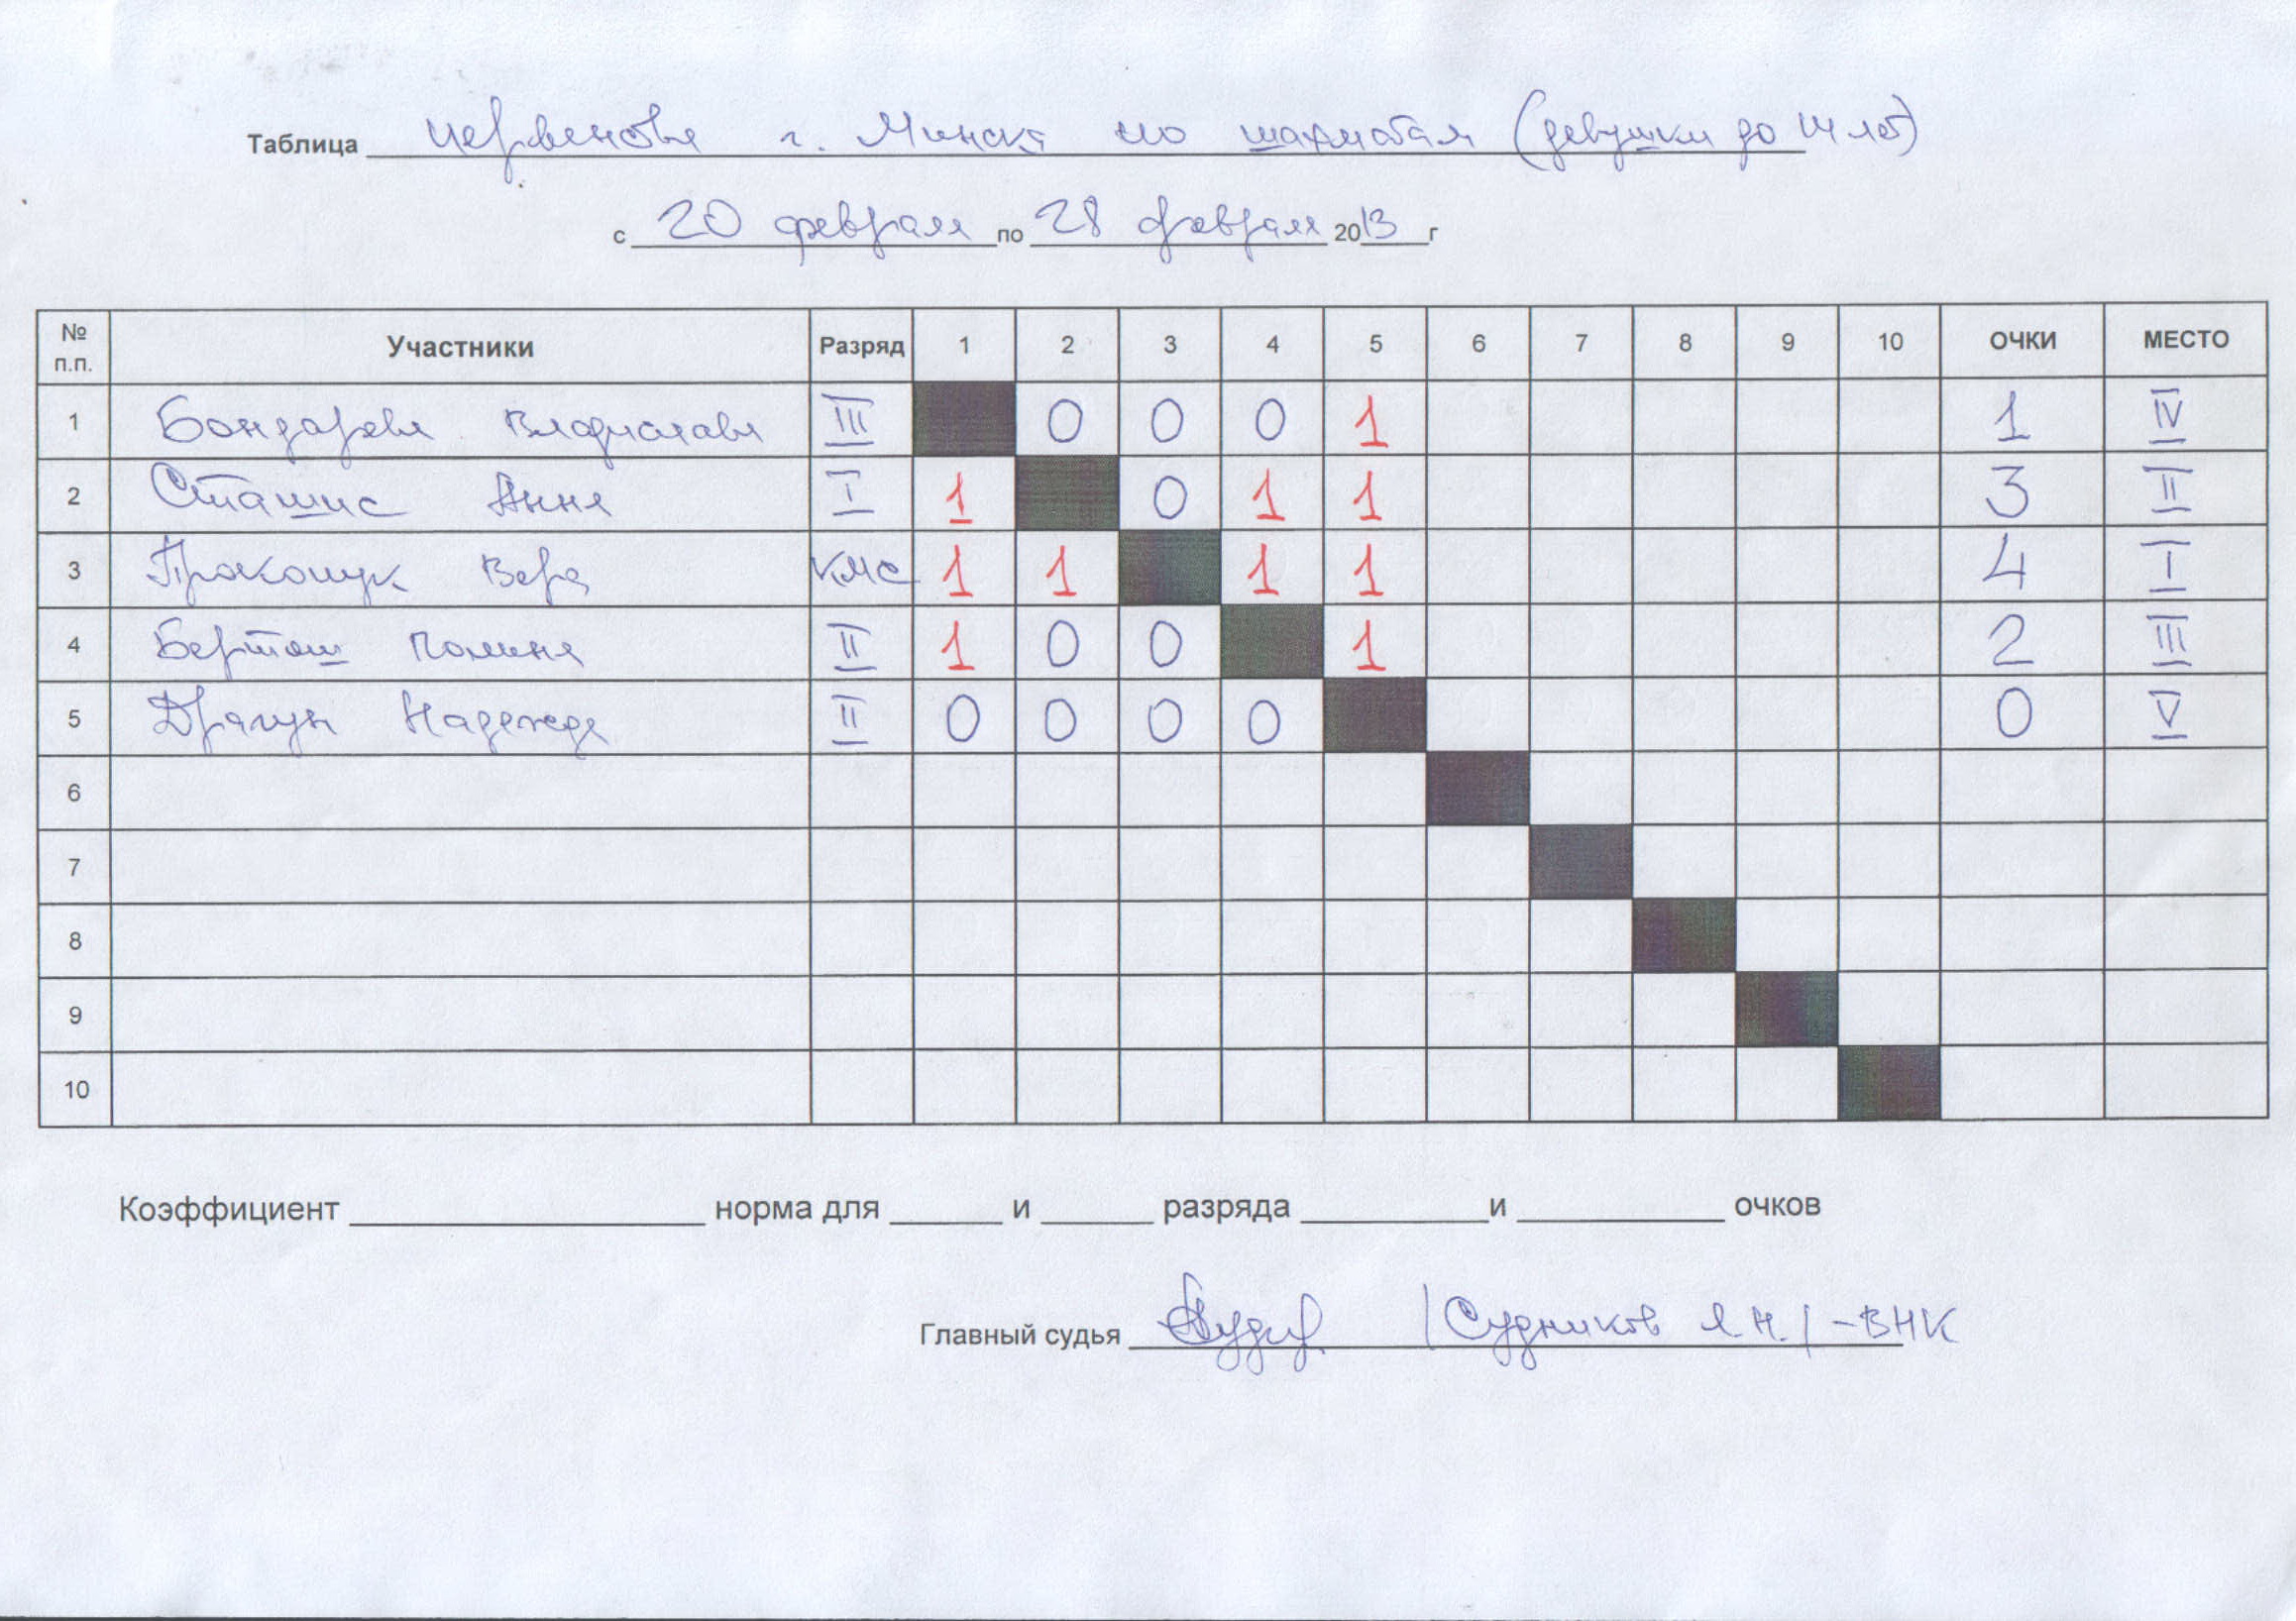 Таблица первенства г. Минска по шахматам (девушки до 14 лет)
с 20 февраля по 28 февраля 2013 г
№ п.п. Участники Разряд 1 2 3 4 5 6 7 8 9 10 ОЧКИ МЕСТО
1 Бондарева Владислава III 0 0 0 1 1 IV
2 Сташис Анна I 1 0 1 1 3 II
3 Прокопук Вера КМС 1 1 1 1 4 I
4 Берташ Полина II 1 0 0 1 2 III
5 Драгун Надежда II 0 0 0 0 0 V
6
7
8
9
10
Коэффициент норма для и разряда и очков
Главный судья /Судников Я.Н./ -ВНК